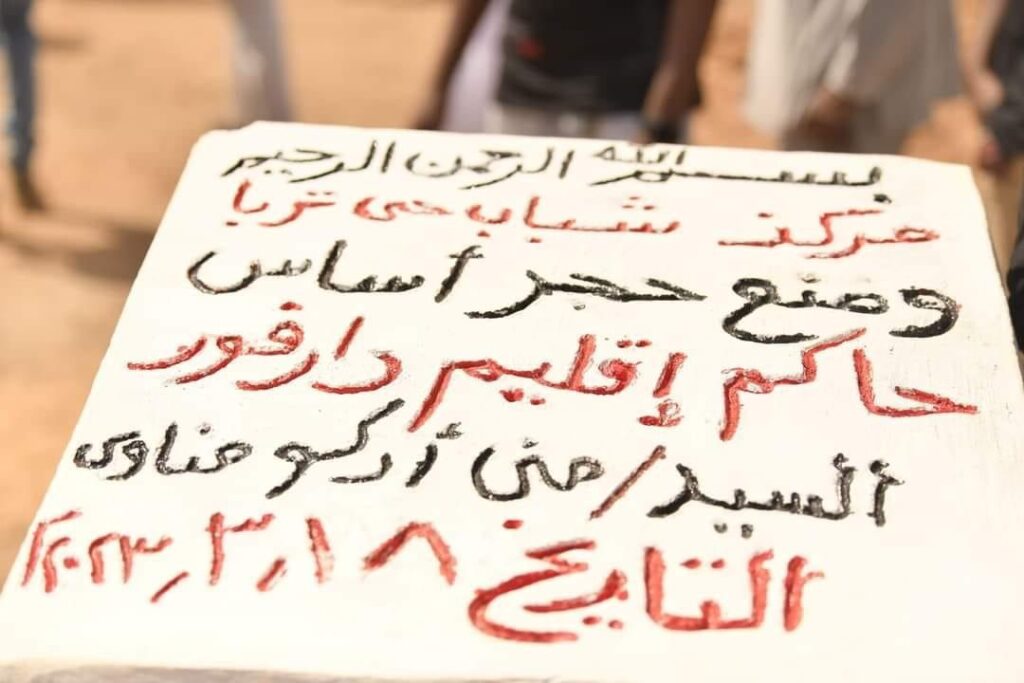 بسم الله الرحمن الرحيم
مركز شباب حى تربا
وضع حجر أساس
حاكم إقليم دارفور
السيد/ منى أركو مناوى
التاريخ ١٨/٣/٢٠٢٣م